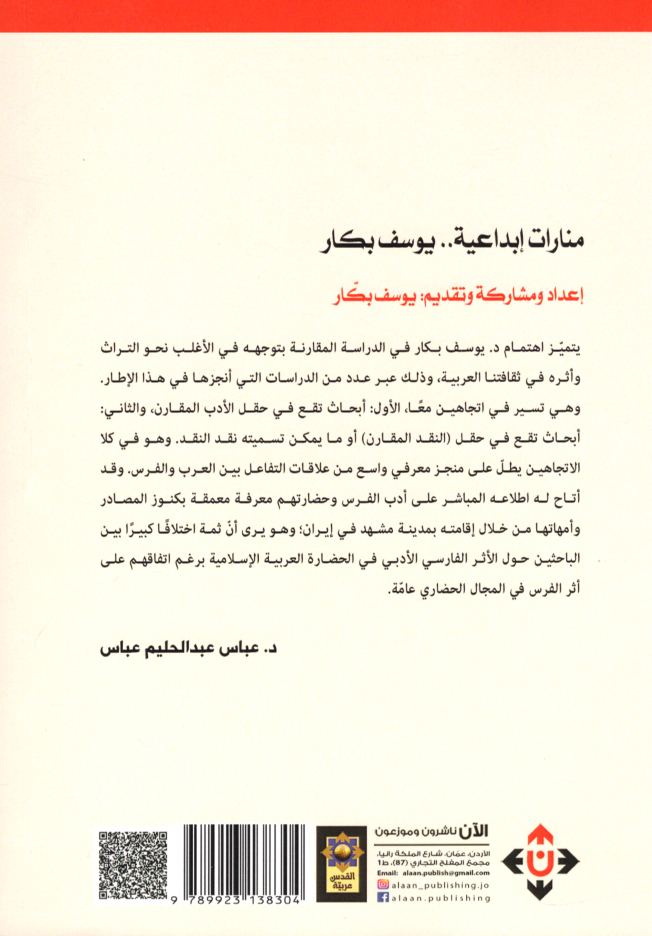 منارات إبداعية.. يوسف بكار
إعداد ومشاركة وتقديم: يوسف بكّار
يتميّز اهتمام د. يوسف بكار في الدراسة المقارنة بتوجهه في الأغلب نحو التراث
وأثره في ثقافتنا العربية، وذلك عبر عدد من الدراسات التي أنجزها في هذا الإطار.
وهي تسير في اتجاهين معًا، الأول: أبحاث تقع في حقل الأدب المقارن، والثاني:
أبحاث تقع في حقل (النقد المقارن) أو ما يمكن تسميته نقد النقد. وهو في كلا
الاتجاهين يطلّ على منجز معرفي واسع من علاقات التفاعل بين العرب والفرس. وقد
أتاح له اطلاعه المباشر على أدب الفرس وحضارتهم معرفة معمقة بكنوز المصادر
وأمهاتها من خلال إقامته بمدينة مشهد في إيران؛ وهو يرى أنّ ثمة اختلافًا كبيرًا بين
الباحثين حول الأثر الفارسي الأدبي في الحضارة العربية الإسلامية برغم اتفاقهم على
أثر الفرس في المجال الحضاري عامّة.
د. عباس عبدالحليم عباس
الآن ناشرون وموزعون
الأردن، عمّان، شارع الملكة رانيا،
مجمع المفلح التجاري (87)، ط1
Email: alaan.publish@gmail.com
alaan_publishing.jo
alaan.publishing
القدس
عربيّة
9 789923 138304
ن